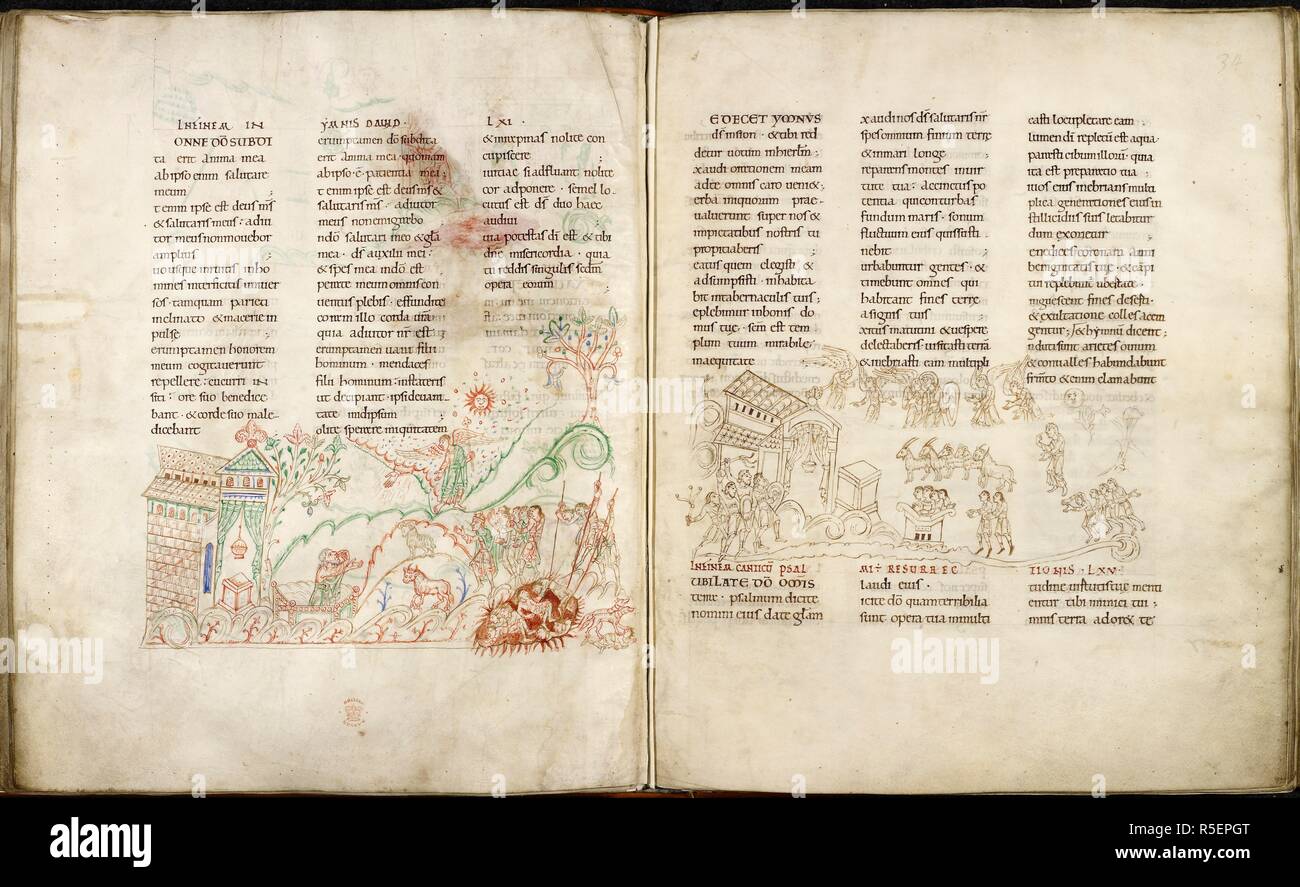 IN FINEM IN
ONNE DŌ SUBDI
ta erit anima mea
ab ipso enim salutare
meum
tenim ipse est deus m̄s
& salutaris meus · adiu
tor meus non movebor
amplius
no usque inruitis in ho
mines interficitis univer
sos · tamquam parieti
inclinato & maceriae in
pulse
erumptamen honorem
meum cogitaverunt
repellere · cucurri IN
siti · ore suo benedice
bant · & corde suo male
dicebant
YMNIS DAVID ·
erumptamen dō subdita
erit anima mea · quoniam
ab ipso · ē patientia mea ;
tenim ipse est deus m̄s &
salutaris m̄s · adiutor
meus non emigrabo
N dō salutari meo & glā
mea · d̄s auxilii mei ·
& spes mea in dō est
perate in eum omnis con
ventus plebis · effundite
coram illo corda vr̄a
quia adiutor nr̄ est
erumptamen vani filii
hominum · mendaces
filii hominum · in stateris
ut decipiant · ipsi de vani
tate in idipsum
olite sperare in iniquitatem
LXI ·
& in rapinas nolite con
cupiscere ;
ivitiae si adfluant nolite
cor adponere · semel lo
cutus est d̄s duo haec
audivi
uia potestas dī est & tibi
dn̄e misericordia · quia
tu reddis singulis sedm̄
opera eorum ;
34
E DECET YMNUS
d̄s in sion · & tibi red
detur votum in hierlm̄ ;
xaudi orationem meam
ad te omnis caro veni& ;
erba iniquorum prae
valuerunt super nos &
impietatibus nostris tu
propitiaberis ;
eatus quem elegisti &
adsumpsisti · inhabita
bit in tabernaculis tuis ;
eplebimur in bonis do
mus tuę · scm̄ est tem
plum tuum mirabile
in aequitate
xaudi nos d̄s salutaris nr̄
spes omnium finium terre
& in mari longe
reparans montes in vir
tute tua · accinctus po
tentia qui conturbas
fundum maris · sonum
fluctuum eius quis susti
nebit
urbabuntur gentes · &
timebunt omnes qui
habitant fines terre
a signis tuis
xitus matutini & vespere
delectaberis · visitasti terrā
& inebriasti eam multipli
casti locupletare eam
lumen dī repletū est aqua ·
parasti cibum illorū · quia
ita est preparatio tua
ivos eius inebrians multi
plica generationes eius in
stillicidiis suis letabitur
dum exorietur
enedices coronam anni
benignitatis tuę · & cāpi
tui replebunt ubertate
inguescent fines deserti ·
& exultatione colles accin
gentur ;
nduti sunt arietes ovium
& convalles habundabunt
frum̄to & enim clamabunt
& hymnū dicent ;
IN FINEM CANTICŪ PSAL
UBILATE DŌ OMIS
terra · psalmum dicite
nomini eius date glam̄
MI · RESURREC
laudi eius ·
icite dō quam terribilia
sunt opera tua in multi
TIONIS · LXV ·
tudine virtutis tuę menti
entur tibi inimici tui ;
mnis terra ador& te
alamy
a
alamy
R5EPGT
www.alamy.com